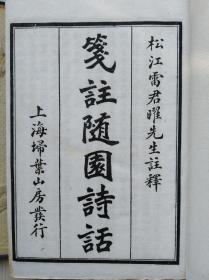 松江雷君曜先生註釋
箋註随園詩話
上海埽葉山房發行